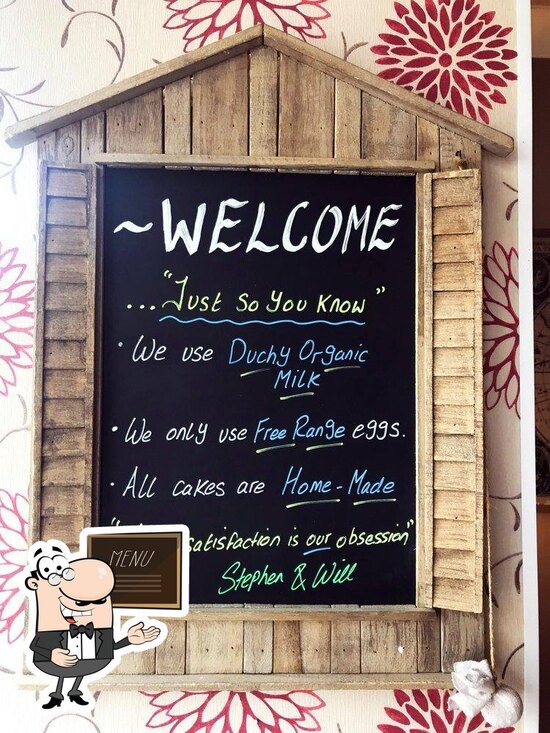 ~WELCOME
..."Just so you know"
• We use Duchy Organic
Milk
• We only use Free Range eggs.
• All cakes are Home-Made
" satisfaction is our obsession"
Stephen & Will
MENU